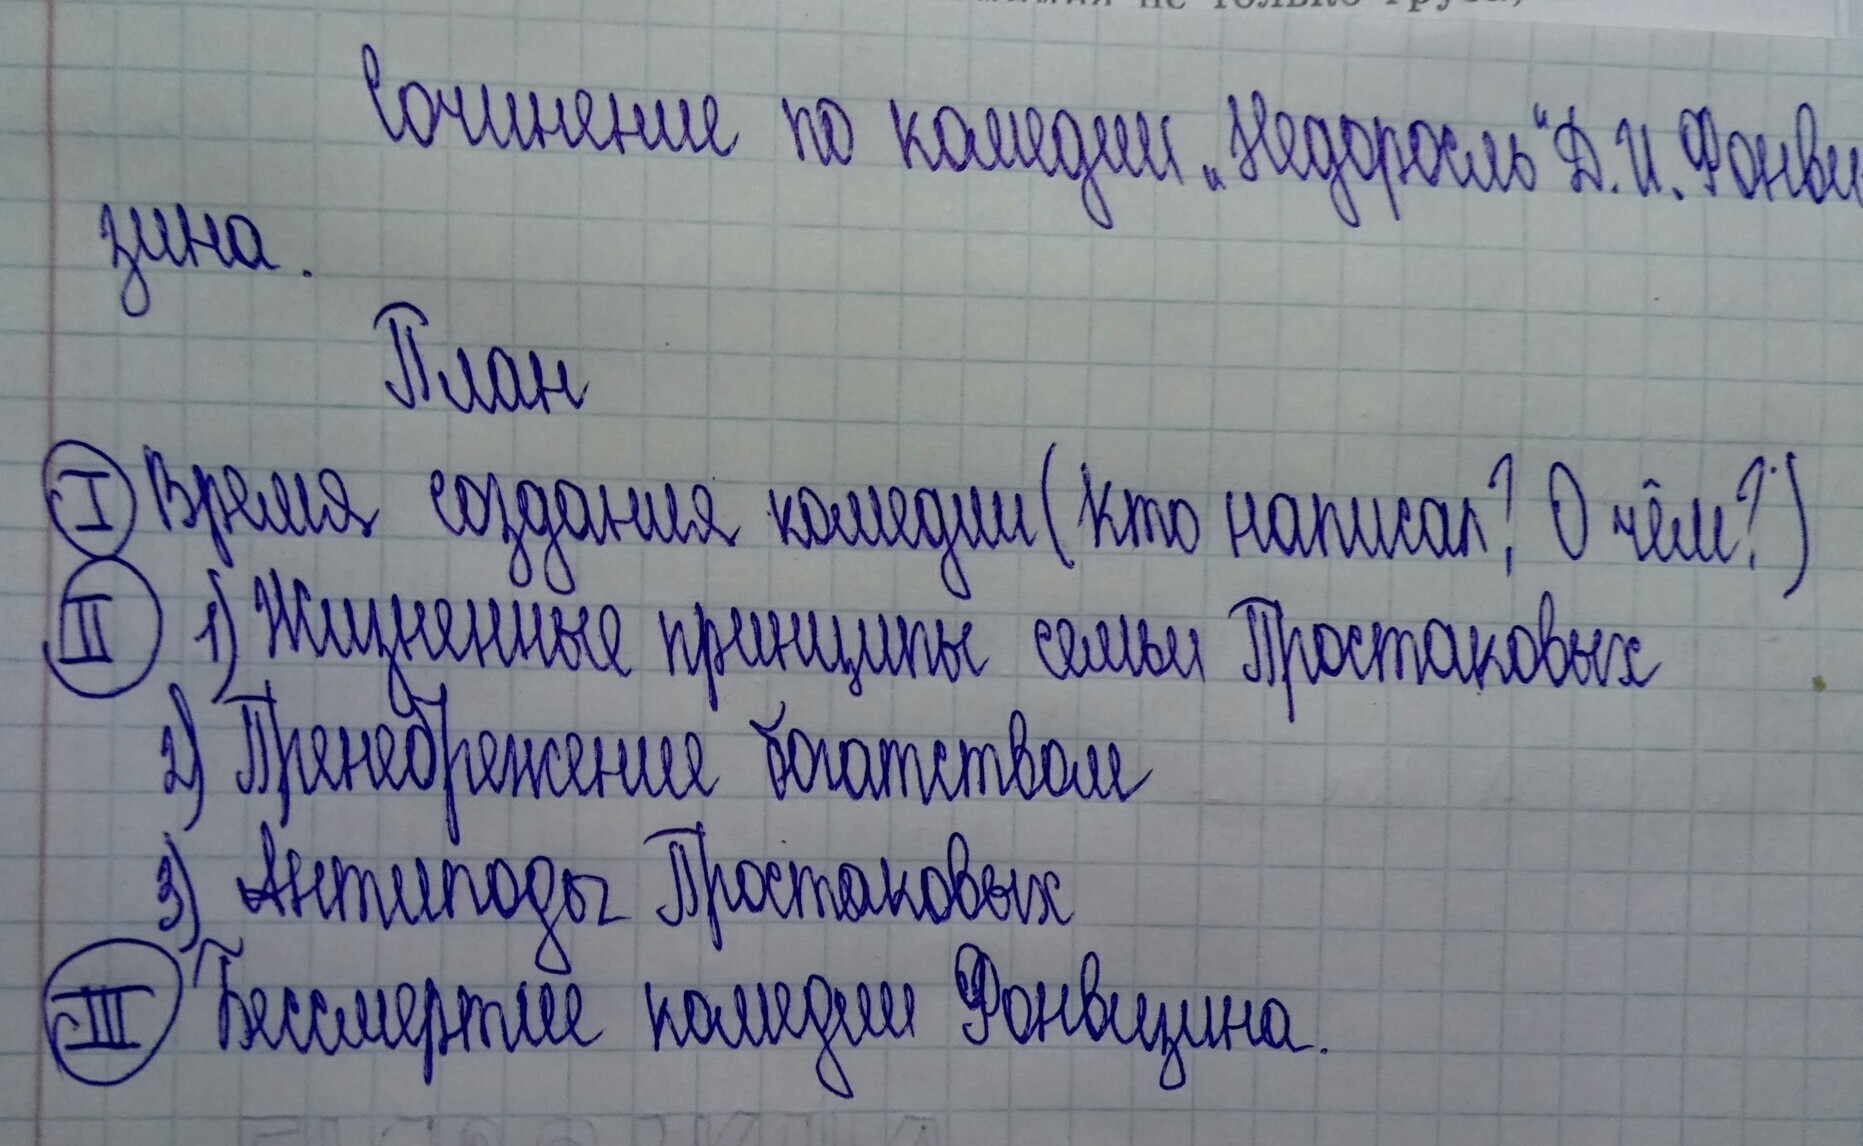 не только груза,
Сочинение по комедии „Недоросль“ Д.И. Фонви
зина.
План
I Время создания комедии (Кто написал? О чём?)
II 1) Жизненные принципы семьи Простаковых
2) Пренебрежение богатством
3) Антиподы Простаковых
III Бессмертие комедии Фонвизина.